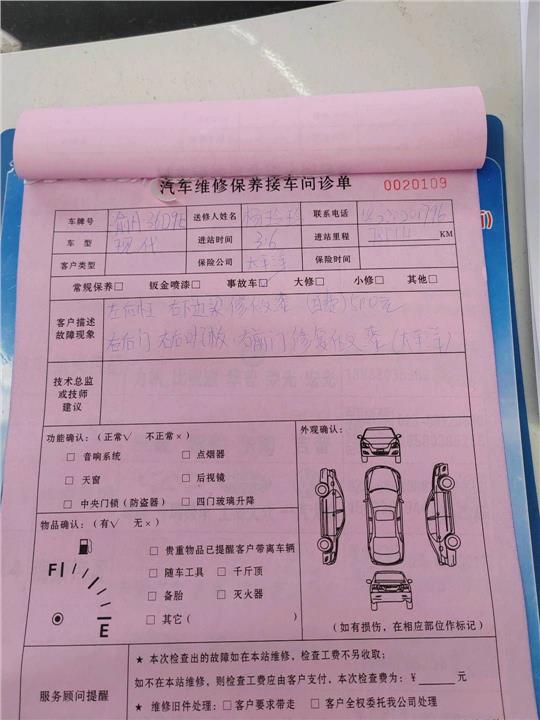 汽车维修保养接车问诊单 0020109
车牌号 送修人姓名 联系电话
车型 现代 进站时间 3.6 进站里程 KM
客户类型 保险公司 保险时间
常规保养□ 钣金喷漆□ 事故车□ 大修□ 小修□ 其他□
客户描述
故障现象
右后门 右前门修复
技术总监
或技师
建议
功能确认:(正常√ 不正常×) 外观确认:
□ 音响系统 □ 点烟器
□ 天窗 □ 后视镜
□ 中央门锁(防盗器) □ 四门玻璃升降
物品确认:(有√ 无×)
□ 贵重物品已提醒客户带离车辆
□ 随车工具 □ 千斤顶
□ 备胎 □ 灭火器
□ 其它(
F
E
(如有损伤,在相应部位作标记)
服务顾问提醒
★ 本次检查出的故障如在本站维修,检查工费不另收取;
如不在本站维修,则检查工费应由客户支付,本次检查费为:¥______元
★ 维修旧件处理:□ 客户要求带走 □ 客户全权委托我公司处理